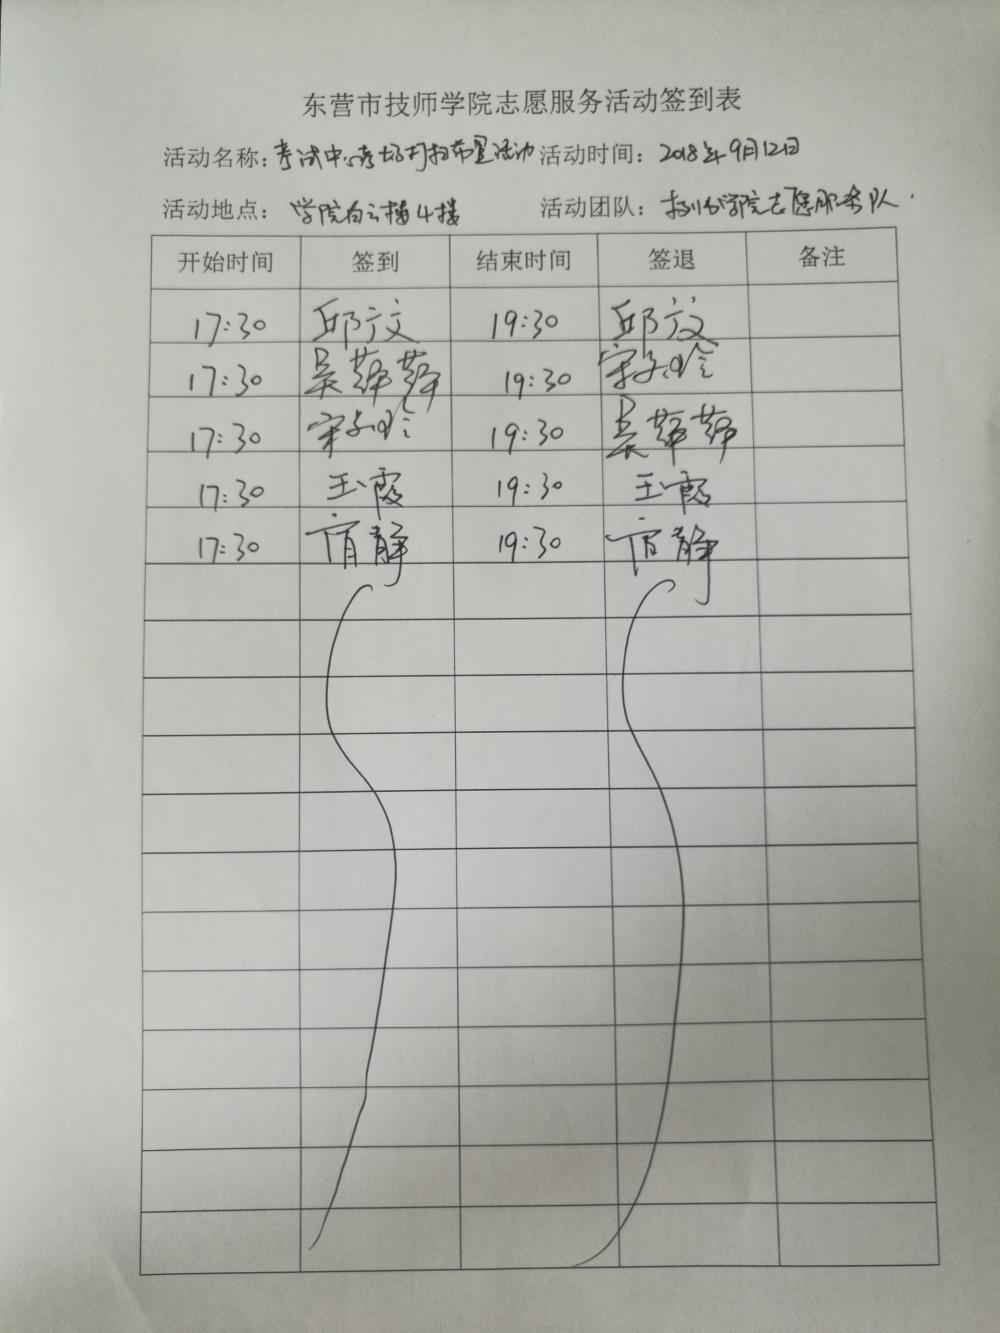 东营市技师学院志愿服务活动签到表
活动名称：考试中心考场打扫布置活动 活动时间：2018年9月12日
活动地点： 学院白云楼4楼 活动团队：技师学院志愿服务队
开始时间 签到 结束时间 签退 备注
17:30 邱文 19:30 邱文
17:30 吴萍萍 19:30 宋子玲
17:30 宋子玲 19:30 吴萍萍
17:30 王霞 19:30 王霞
17:30 宿静 19:30 宿静